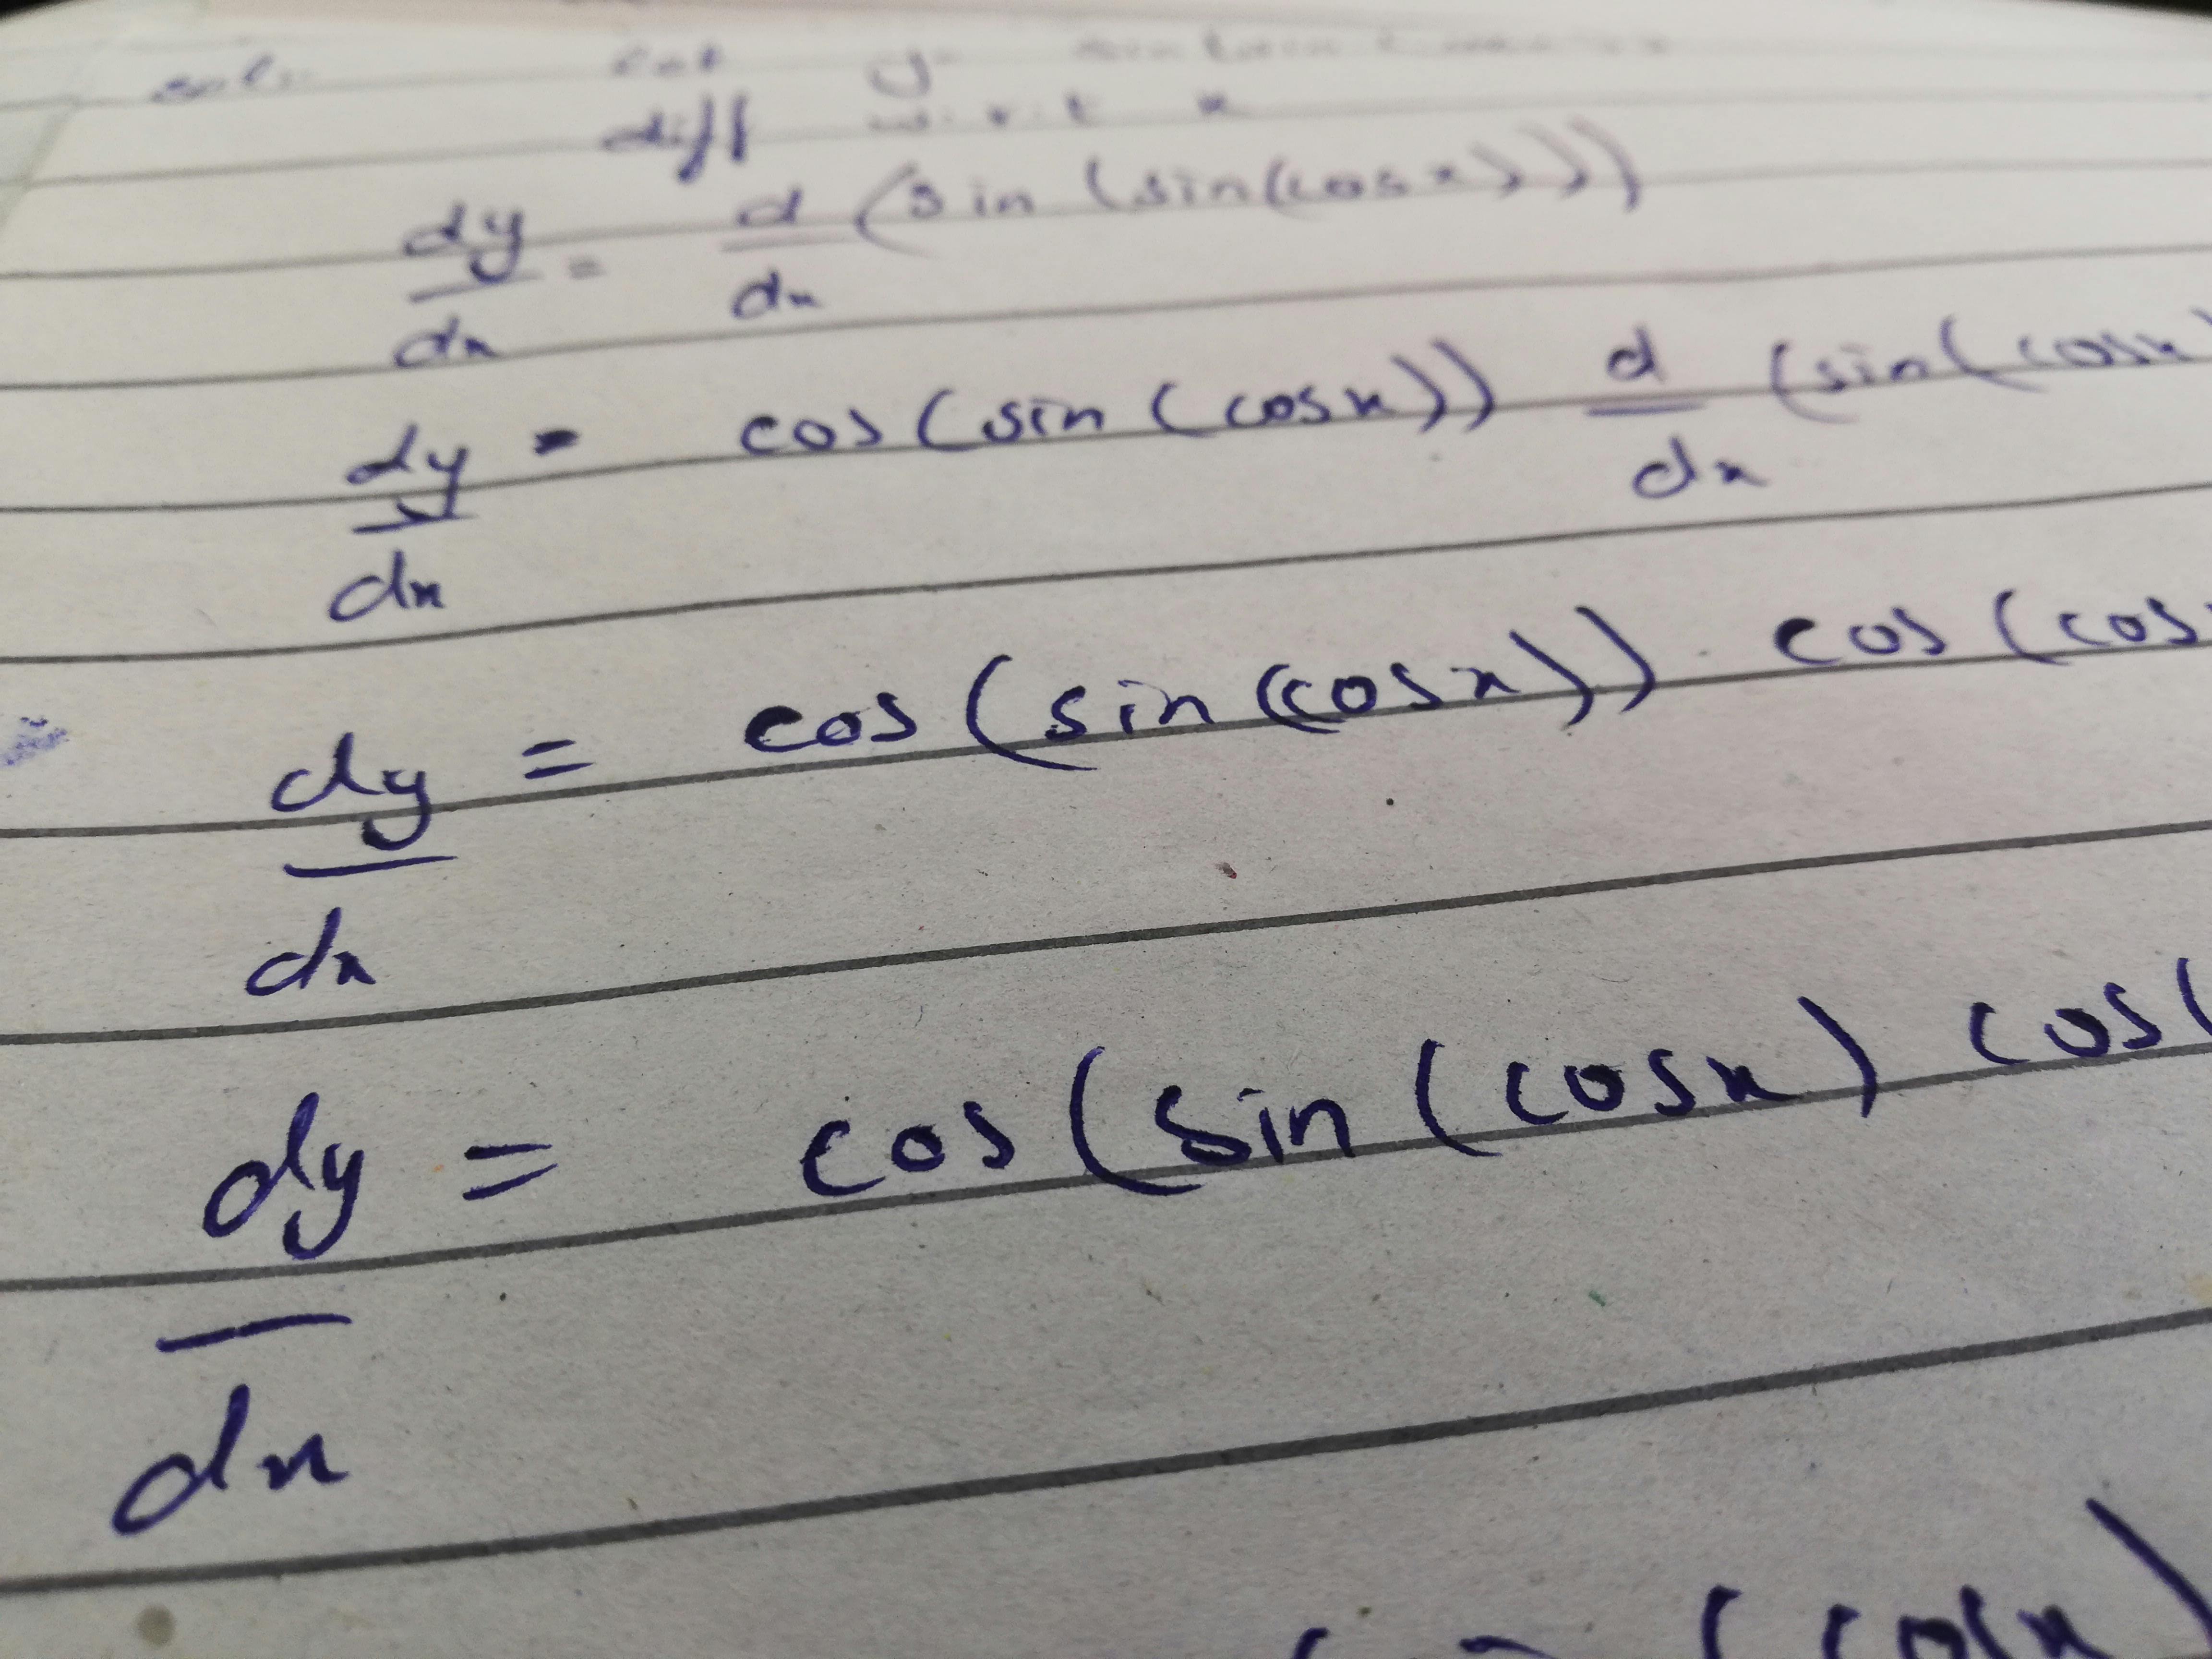 sol.
let y
diff w.r.t x
dy/dx = d/dx (sin (sin(cosx)))
dy/dx = cos(sin(cosx)) d/dx (sin(cosx)
dy/dx = cos(sin(cosx)) . cos(cos
dy/dx = cos(sin(cosx) cos(
(cosx)